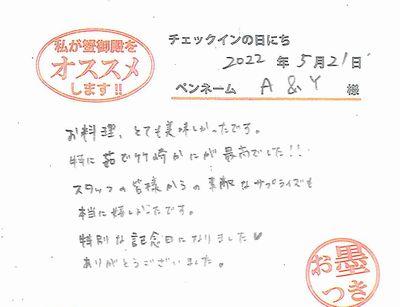 私が蟹御殿を
オススメ
します!!
チェックインの日にち
2022 年 5月21日
ペンネーム A & Y 様
お料理、とても美味しかったです。
特に茹で竹崎かにが最高でした!!
スタッフの皆様からの素敵なサプライズも
本当に嬉しかったです。
特別な記念日になりました♥
ありがとうございました。
お墨
つき